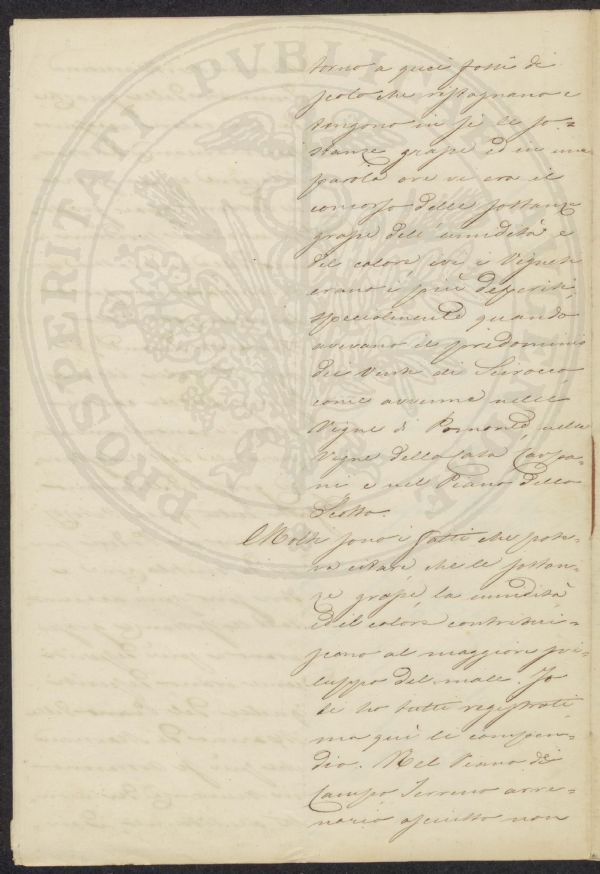 PROSPERITATI PVBLICAE AVGENDAE
torno a quei fossi di
scolo che ristagnano e
tengono in se le so=
stanze grasse ed in una
parola ove vi era il
concorso delle sostanze
grasse dell' umidità e
del calore ivi i Vigneti
erano i più deperiti,
specialmente quando
avevano il predominio
dei Venti di Scirocco
come avvenne nelle
Vigne di Pomonte, nelle
Vigne della Casa
ni e nel Piano della
Molti sono i fatti che pote=
va citare che le sostan=
ze grasse la umidità
ed il calore contribui=
scano al maggiore svi=
luppo del male. Io
li ho tutti registrati
ma qui le compen=
dio. Nel Piano di
Campo Terreno arre=
nario asciutto non